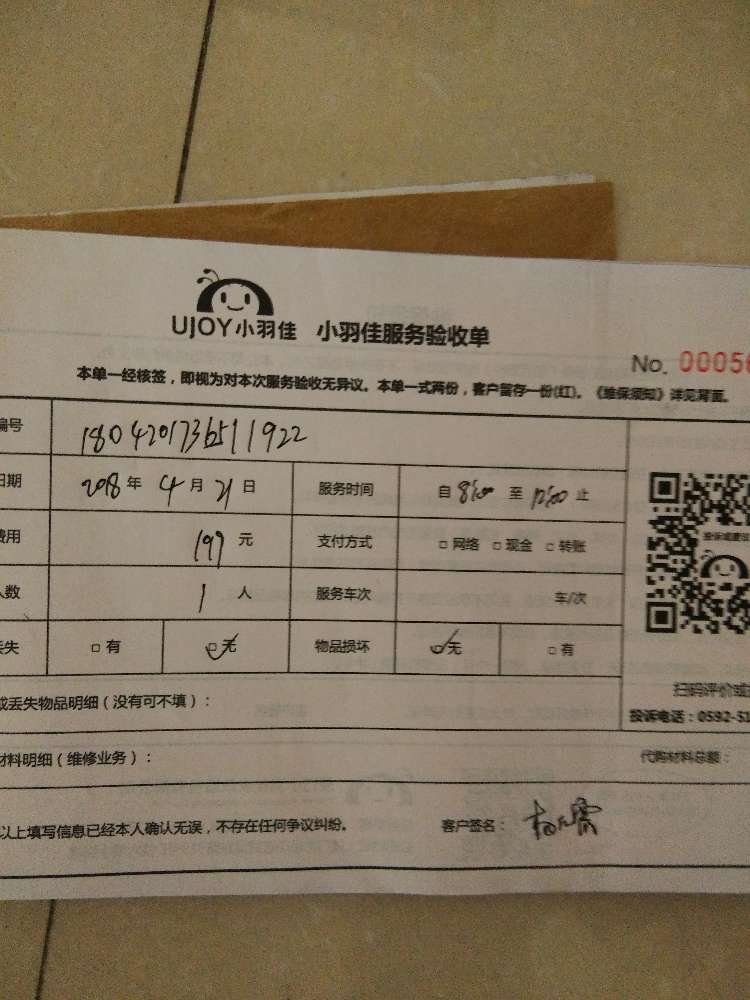 UJOY小羽佳 小羽佳服务验收单
No. 00056
本单一经核签，即视为对本次服务验收无异议。本单一式两份，客户留存一份(红)。《维保须知》详见背面。
编号
日期 2018 年 4 月 21 日 服务时间 自 8:00 至 12:00 止
费用 199 元 支付方式 □ 网络 □ 现金 □ 转账
人数 1 人 服务车次 车/次
丢失 □ 有 □ 无 物品损坏 □ 无 □ 有
投诉或建议
扫码评价或
或丢失物品明细（没有可不填）：
投诉电话：0592-51
材料明细（维修业务）： 代购材料总额：
以上填写信息已经本人确认无误，不存在任何争议纠纷。 客户签名：